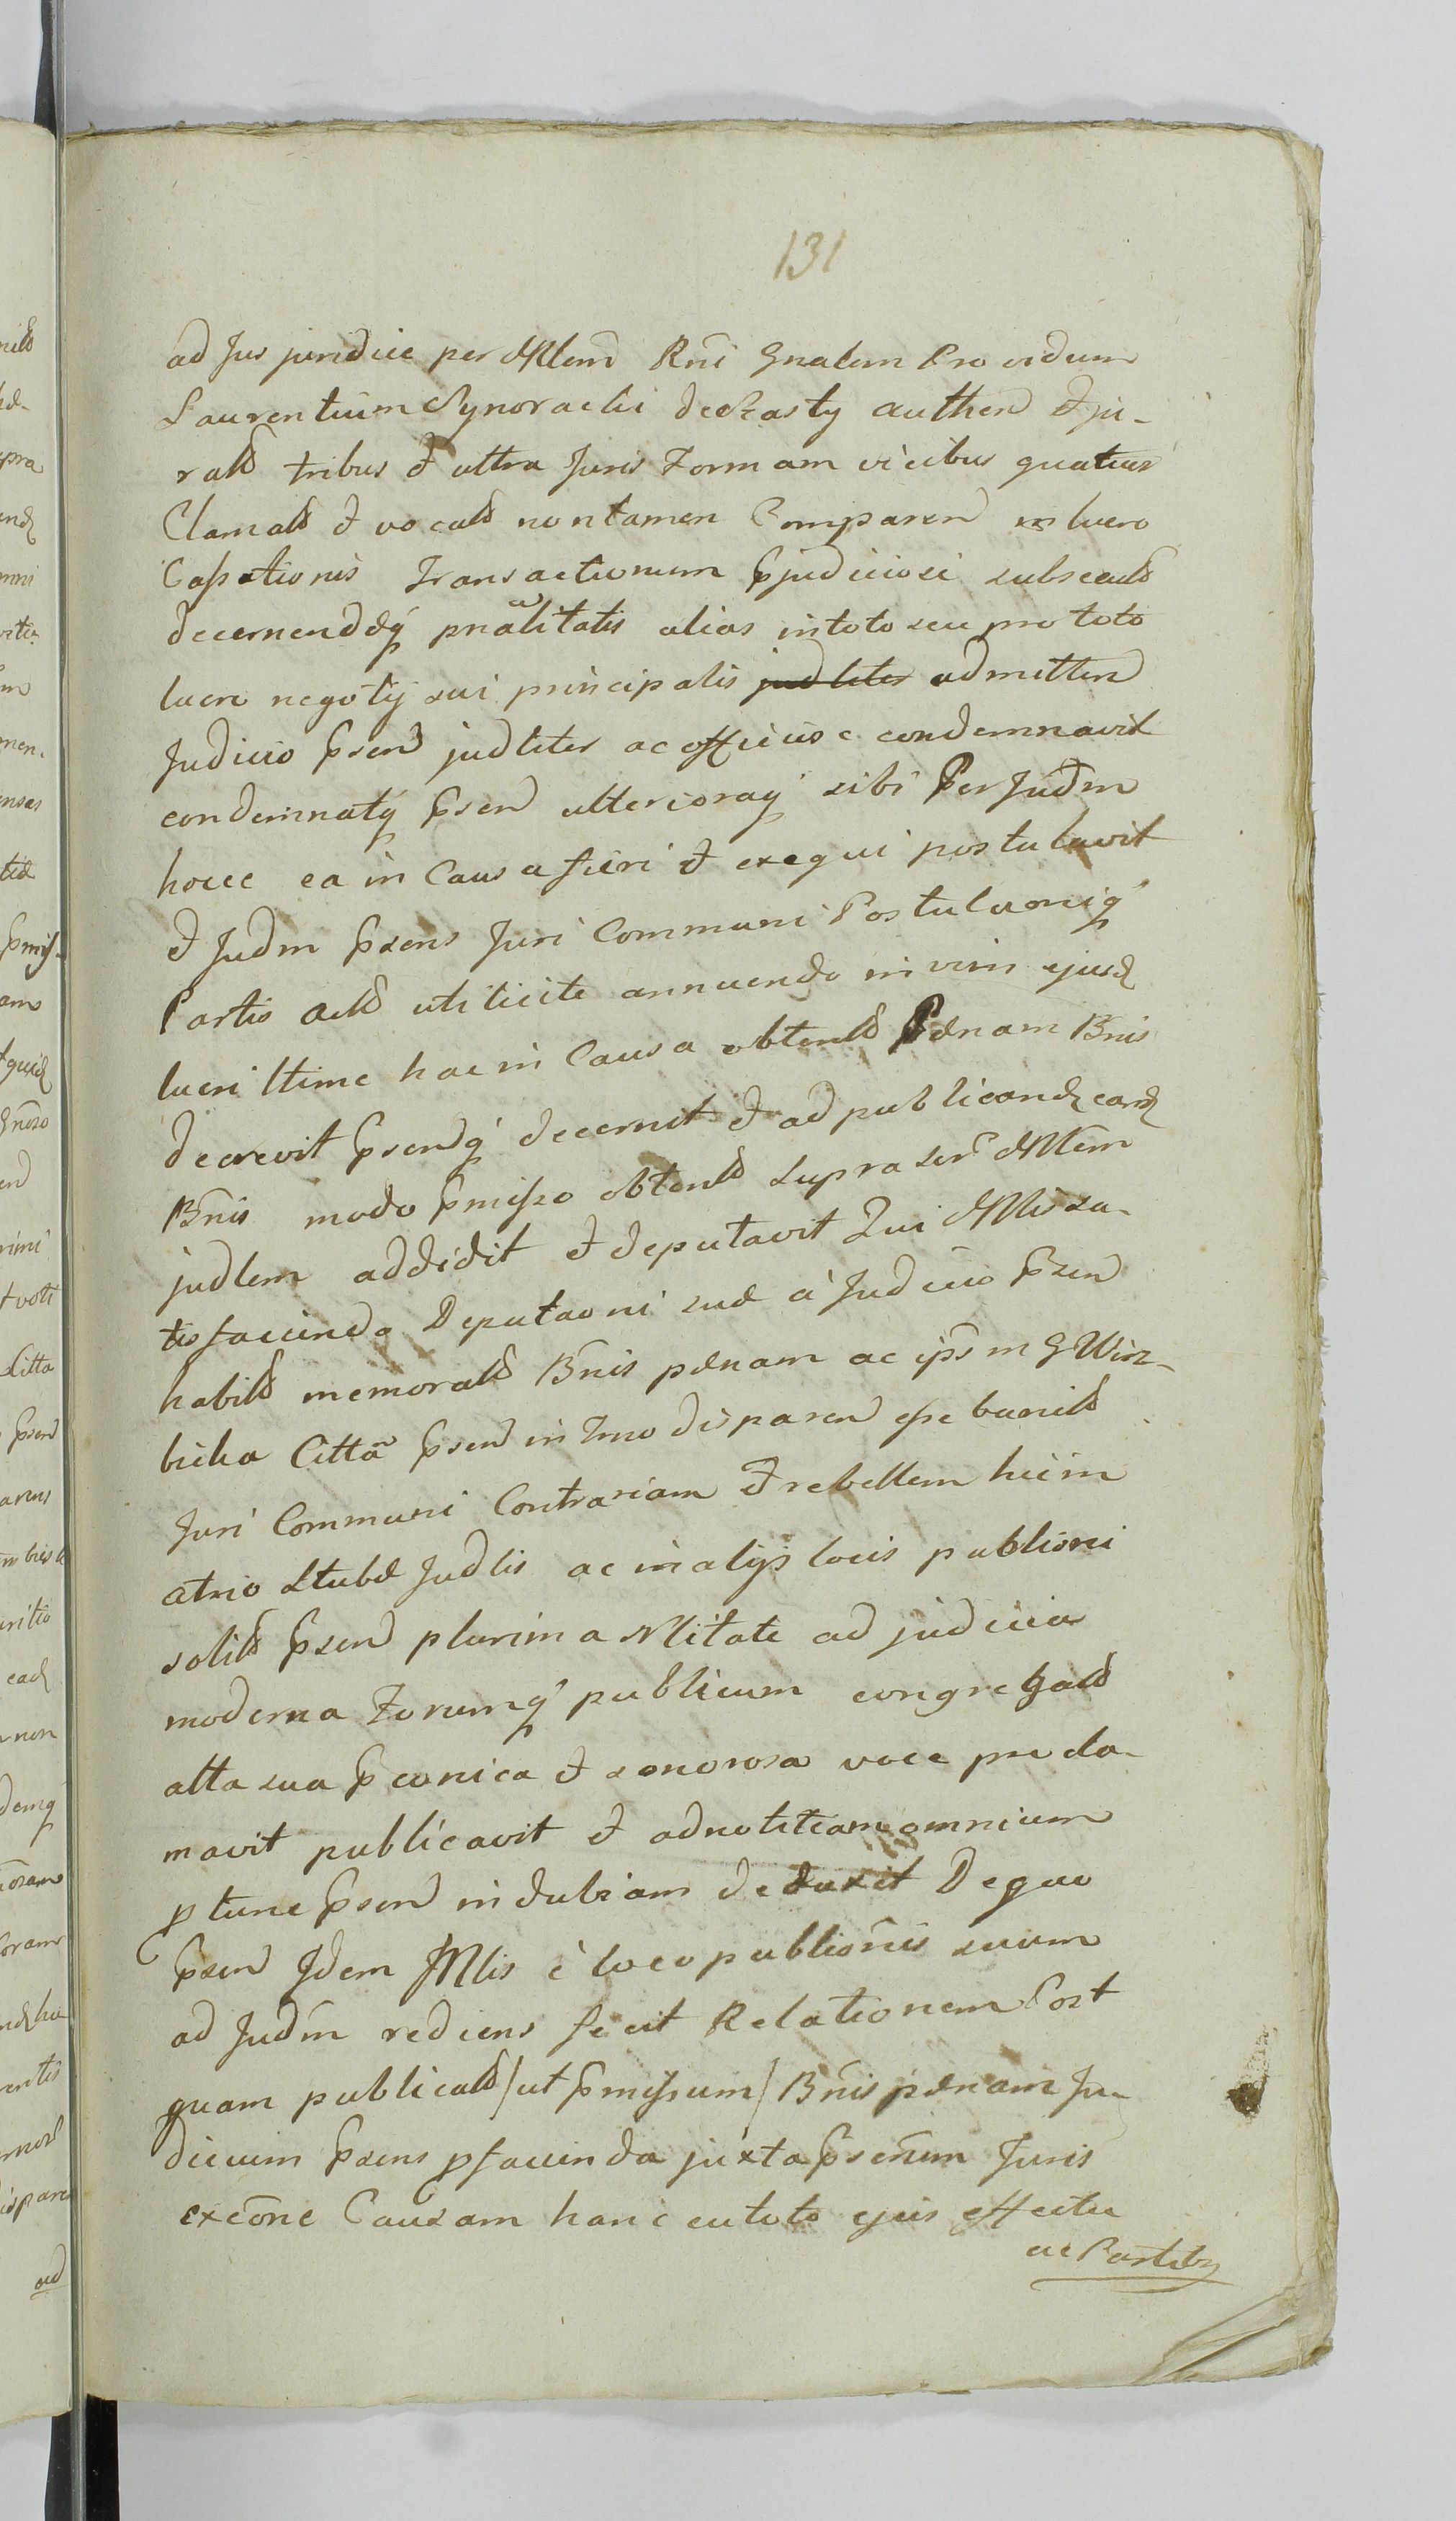 131
ad Jus juridice per Mlem Rni Gnalem Providum
Laurentium Synoracki de Zasty authen et ju-
ratt tribus et ultra Juris Formam vicibus quatuor
Clamatt et vocatt non tamen Comparen in lucro
Cassationis Transactionum pjudiciosi subsecutt
decernendæq pnalitatis alias in toto seu pro toto
lucro negotij sui principalis judliter admitten
Judicio psen judliter ac officiose condemnavit
condemnatq psen ulterioraq sibi per Judm
hocce ea in Causa fieri et exequi postulavit
et Judm psens Juri Communi Postulaoniq
Partis actt uti licite annuendo in vim ejusd
lucri ltime hac in Causa obtentt Pænam Bnis
decrevit psenq decernit et ad publicand eand
Bnis modo pmisso obtentt supra scr Mlem
judlem addidit et deputavit Qui Mlis sa-
tisfaciendo Deputaoni suæ à Judicio psen
habitt memoratt Bnis pænam ac ipsm G Wierz-
bicka Cittã psen in Tmo disparen esse banitt
Juri Communi Contrariam et rebellem hic in
atrio Stubæ Judlis ac in alijs locis publioni
solitt psen plurima Nlitate ad judicia
moderna Forumq publicum congregatt
alta sua pconica et sonorosa voce procla-
mavit publicavit et ad notitiam omnium
ptunc psen indubiam deduxit De quo
psen Idem Mlis è loco publionis suum
ad Judm rediens fecit Relationem Post
quam publicatt /ut pmissum/ Bnis pænam Ju-
dicium psens pfaciendo juxta psenem Juris
exeone Causam hanc cu toto ejus effectu
ac Partibq